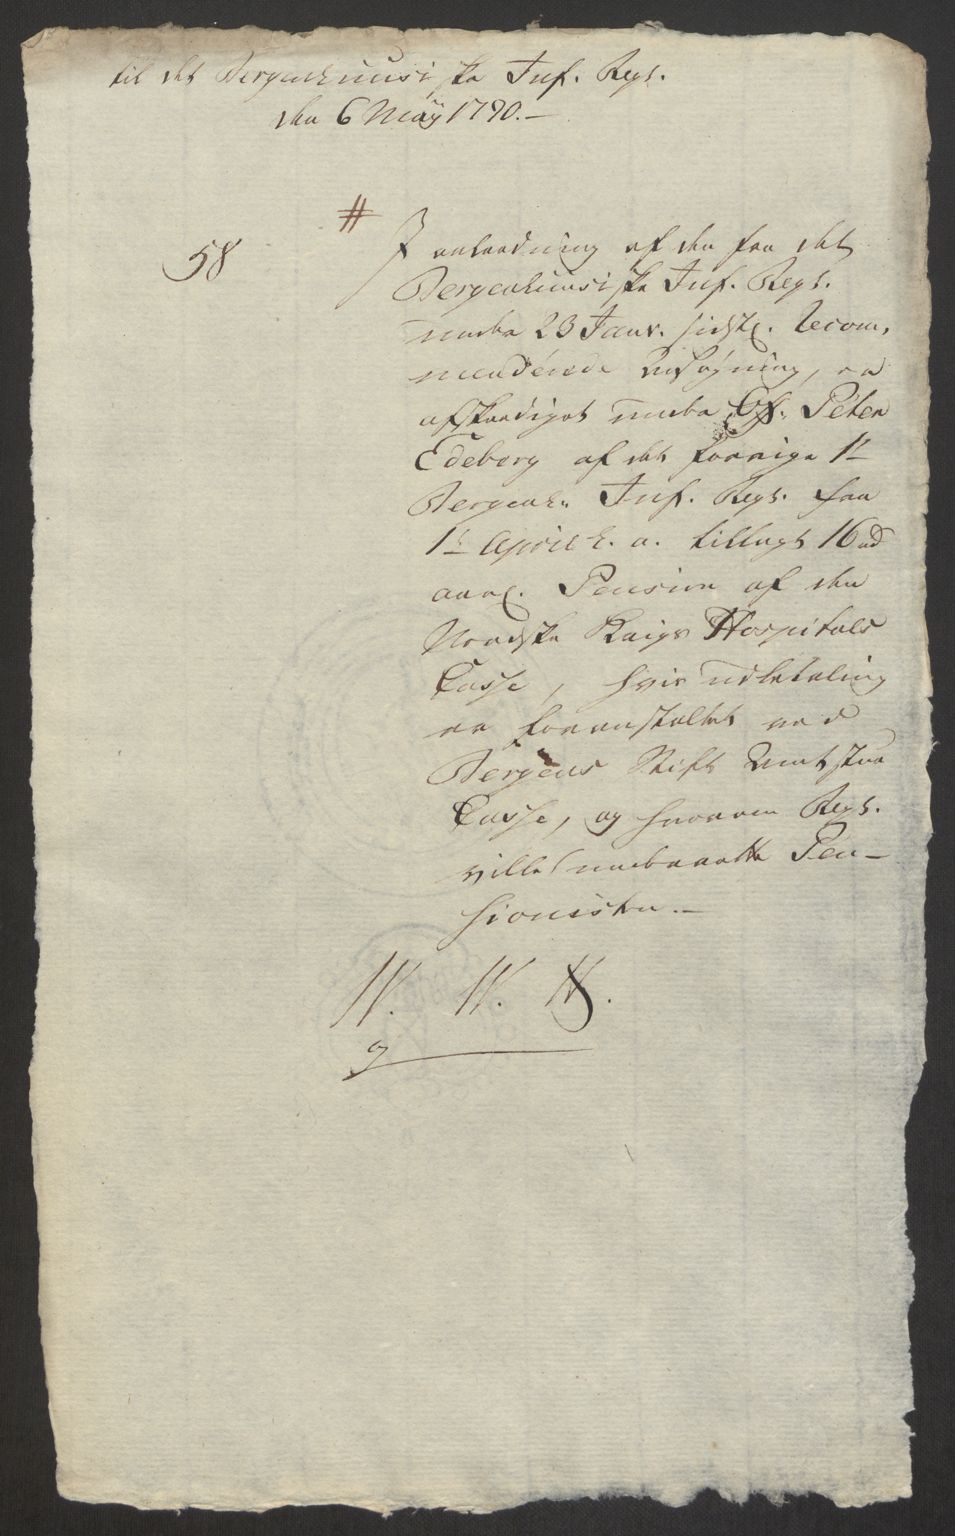 til det Bergenhuusiske Inf. Regt.
den 6 May 1790.—
#
58
I anleedning af den fra det
Bergenhuusiske Inf. Regt.
under 23 Janv. sidstl. recom-
menderede Ansøgning, er
afskeediget under Off. Peter
Edeborg af det forrige 1te
Bergenh. Inf. Regt. fra
1te April h. a. tillagt 16 rd
aarl. Pension af den
Norske Krigs Hospitals
Casse, hvis Udbetaling
er foranstaltet ved
Bergens Stift Amtstue
Casse, og hvorom Regt.
ville underrette Pen-
sionisten.—